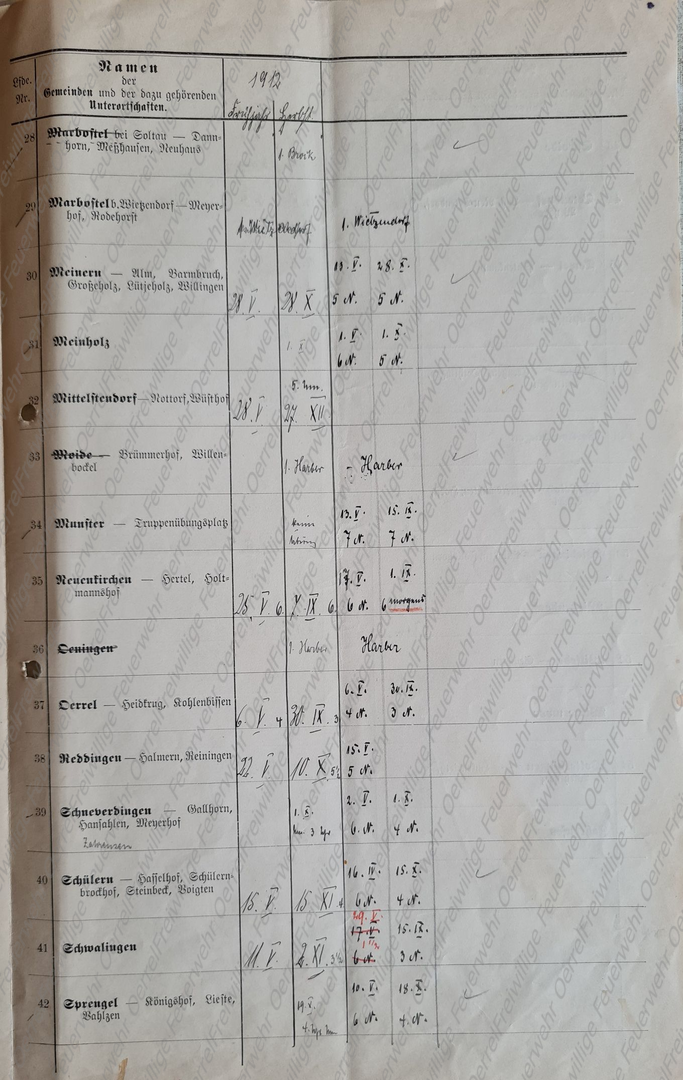 Namen
der
Gemeinden und der dazu gehörenden
Unterortschaften.
Lfde.
Nr.
1912
Frühjahr Herbst
28 Marbostel bei Soltau — Dann-
horn, Meßhausen, Neuhaus
1. Brock
29 Marbostel b. Wietzendorf — Meyer-
hof, Rodehorst
1. Wietzendorf
30 Meinern — Alm, Barmbruch,
Großeholz, Lütjeholz, Willingen
28 V. 28. X
13. V. 28. X.
5 N. 5 N.
31 Meinholz
1. X
1. V. 1. X.
6 N. 5 N.
32 Mittelstendorf — Nottorf, Wüsthof
5. Nm.
28. V 27. XII
33 Moide — Brümmerhof, Willen-
bockel
1. Harber
Harber
34 Munster — Truppenübungsplatz
keine
13. V. 15. IX.
7 N. 7 N.
35 Neuenkirchen — Hertel, Holt-
mannshof
25. V. 6. 7. IX 6.
17. V. 1. IX.
6 N. 6 morgens
36 Deningen
1. Harber
Harber
37 Oerrel — Heidkrug, Kohlenbissen
6. V. 4 30. IX. 3
6. V. 30. IX.
4 N. 3 N.
38 Reddingen — Halmern, Reiningen
22. V 10. X. 5½
15. V.
5 N.
39 Schneverdingen — Gallhorn,
Hansahlen, Meyerhof
Zahrensen
1. X.
Nm 3 Uhr
2. V. 1. X.
6. N. 4 N.
40 Schülern — Hasselhof, Schülern-
brockhof, Steinbeck, Voigten
15. V. 15 XI 4
16. IV. 15. X.
6 N. 4 N.
41 Schwalingen
11. V. 2. XI. 3½
29. V.
17. V. 15. IX.
6 N. 3 N.
42 Sprengel — Königshof, Lieste,
Vahlzen
19. X.
4. Uhr Nm
10. V. 18. X.
6 N. 4. N.
Freiwillige Feuerwehr Oerrel